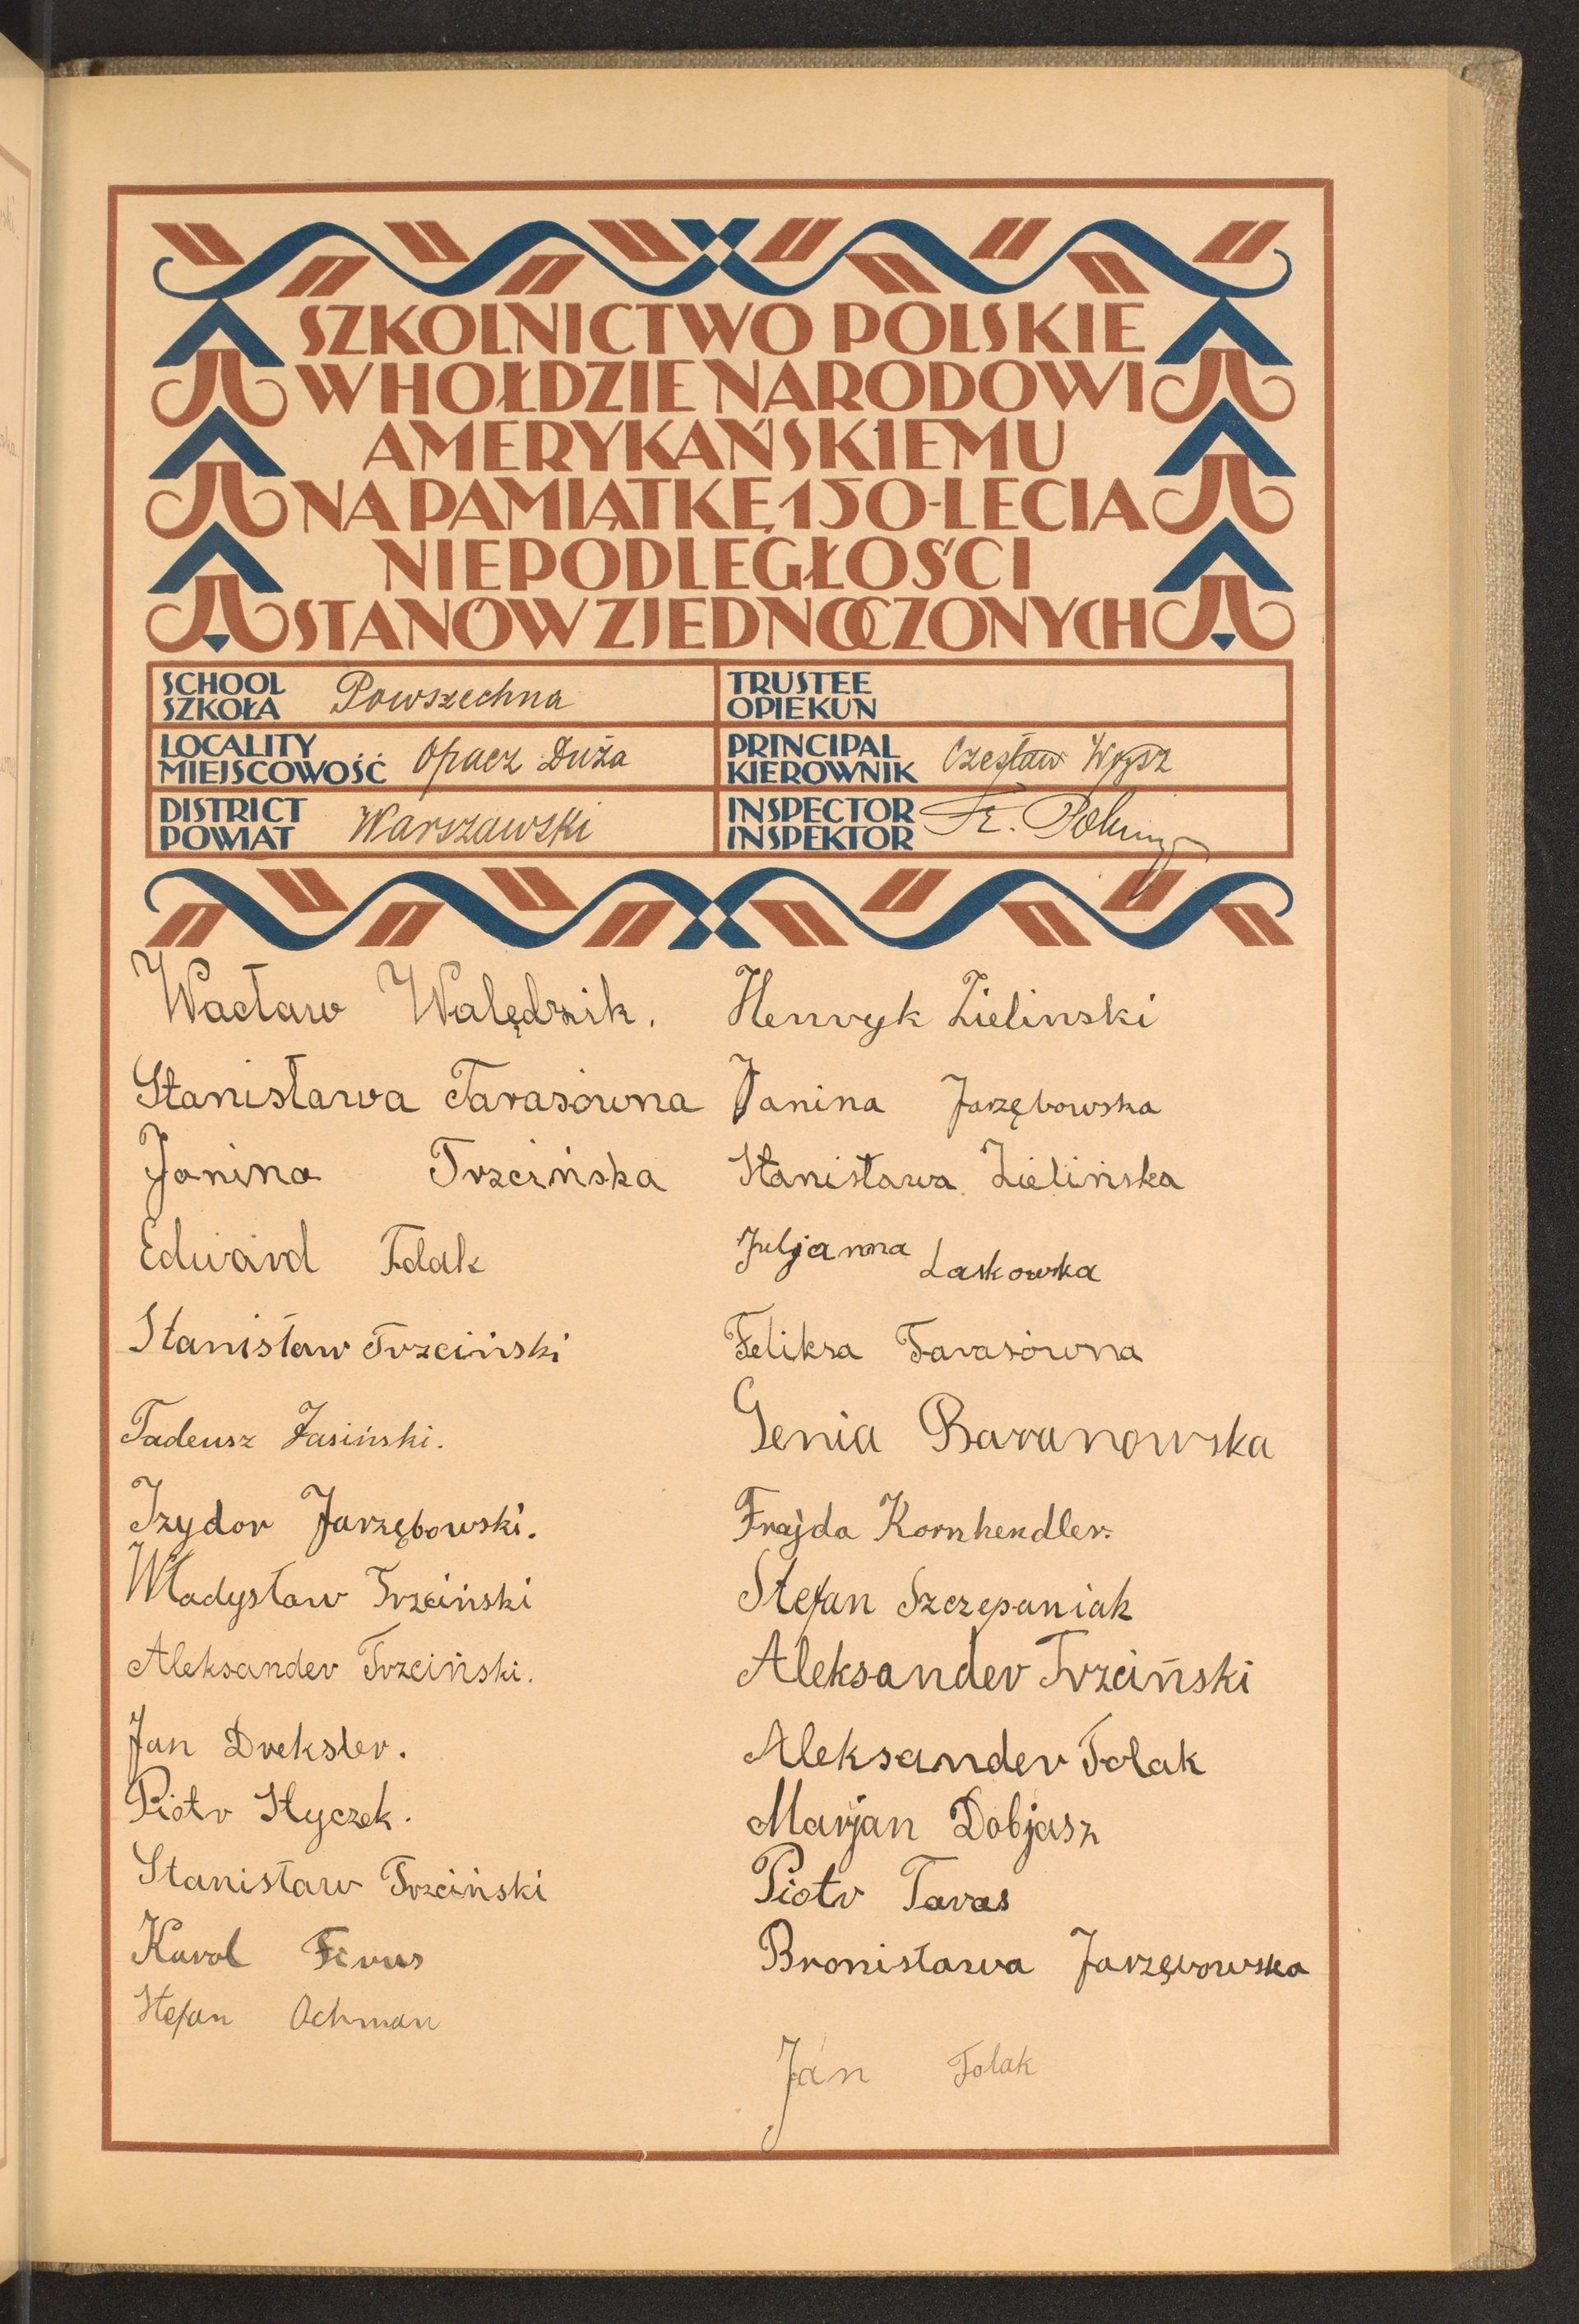 SZKOLNICTWO POLSKIE
W HOŁDZIE NARODOWI
AMERYKAŃSKIEMU
NA PAMIĄTKĘ 150-LECIA
NIEPODLEGŁOŚCI
STANÓW ZJEDNOCZONYCH
SCHOOL
SZKOŁA
Powszechna
TRUSTEE
OPIEKUN
LOCALITY
MIEJSCOWOŚĆ
Opacz Duża
PRINCIPAL
KIEROWNIK
Czesław
DISTRICT
POWIAT
Warszawski
INSPECTOR
INSPEKTOR
Wacław Walędzik.
Stanisława Tarasówna
Janina Trzcińska
Edward Folak
Stanisław Trzciński
Tadeusz Jasiński.
Izydor Jarzębowski.
Władysław Trzciński
Aleksander Trzciński.
Jan Dreksler.
Piotr Styczek.
Stanisław Trzciński
Karol
Stefan Ochman
Henryk Zielinski
Janina Jarzębowska
Stanisława Zielińska
Juljanna Laskowska
Feliksa Tarasówna
Genia Baranowska
Frajda Kornhendler.
Stefan Szczepaniak
Aleksander Trzciński
Aleksander Folak
Marjan Dobjasz
Piotr Taras
Bronisława Jarzębowska
Jan Folak